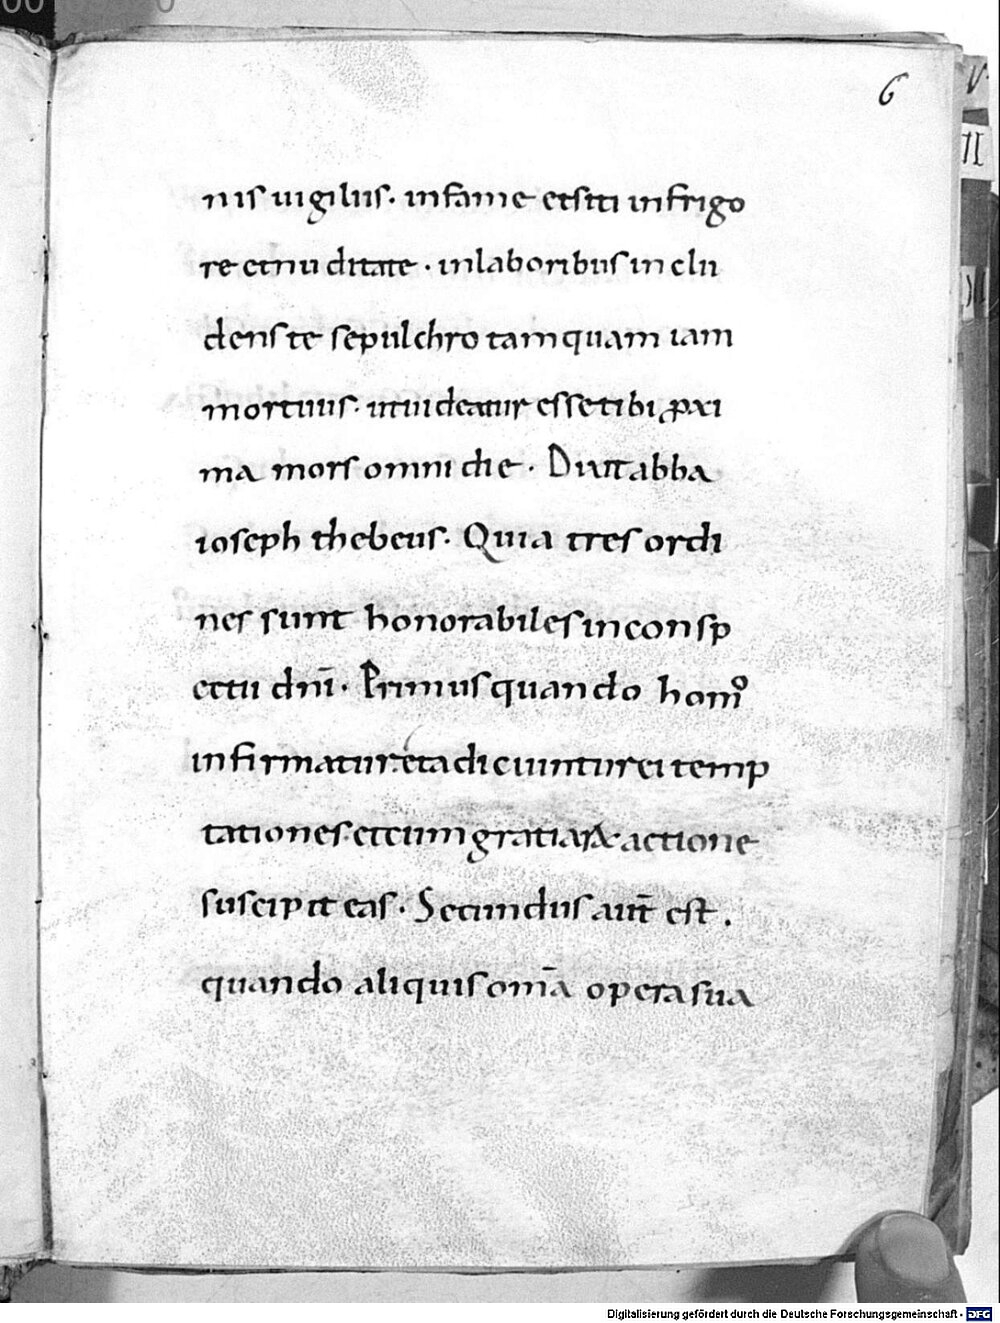 6
nis uigiliis. in fame et siti in frigo
re et nuditate. in laboribus inclu
dens te sepulchro tamquam iam
mortuus. ut uideatur esse tibi ꝓxi
ma mors omni die. Dixit abba
ioseph thebeus. Quia tres ordi
nes sunt honorabiles in consp
ectu dnī. Primus quando homo
infirmatur. et adiciuntur ei temp
tationes. et cum gratiaꝝ actione
suscipit eas. Secundus aut̄ est.
quando aliquis omīa opera sua
Digitalisierung gefördert durch die Deutsche Forschungsgemeinschaft - DFG